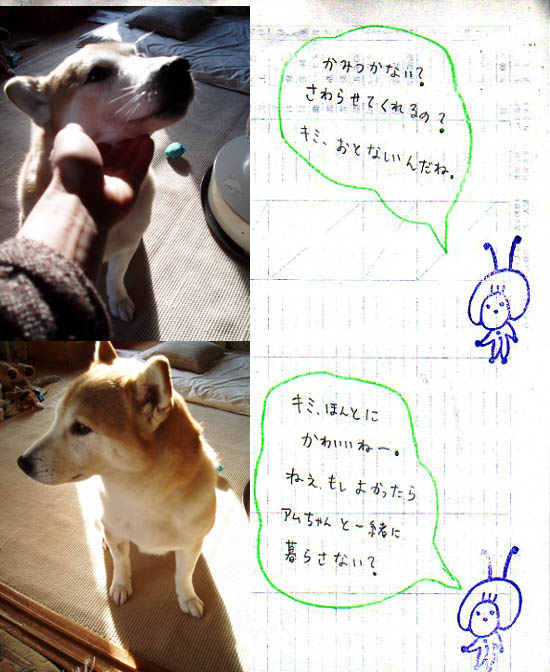 かみつかない?
さわらせてくれるの?
キミ、おとないんだね。
キミ、ほんとに
かわいいねー。
ねえ、もしよかったら
アムちゃんと一緒に
暮らさない?